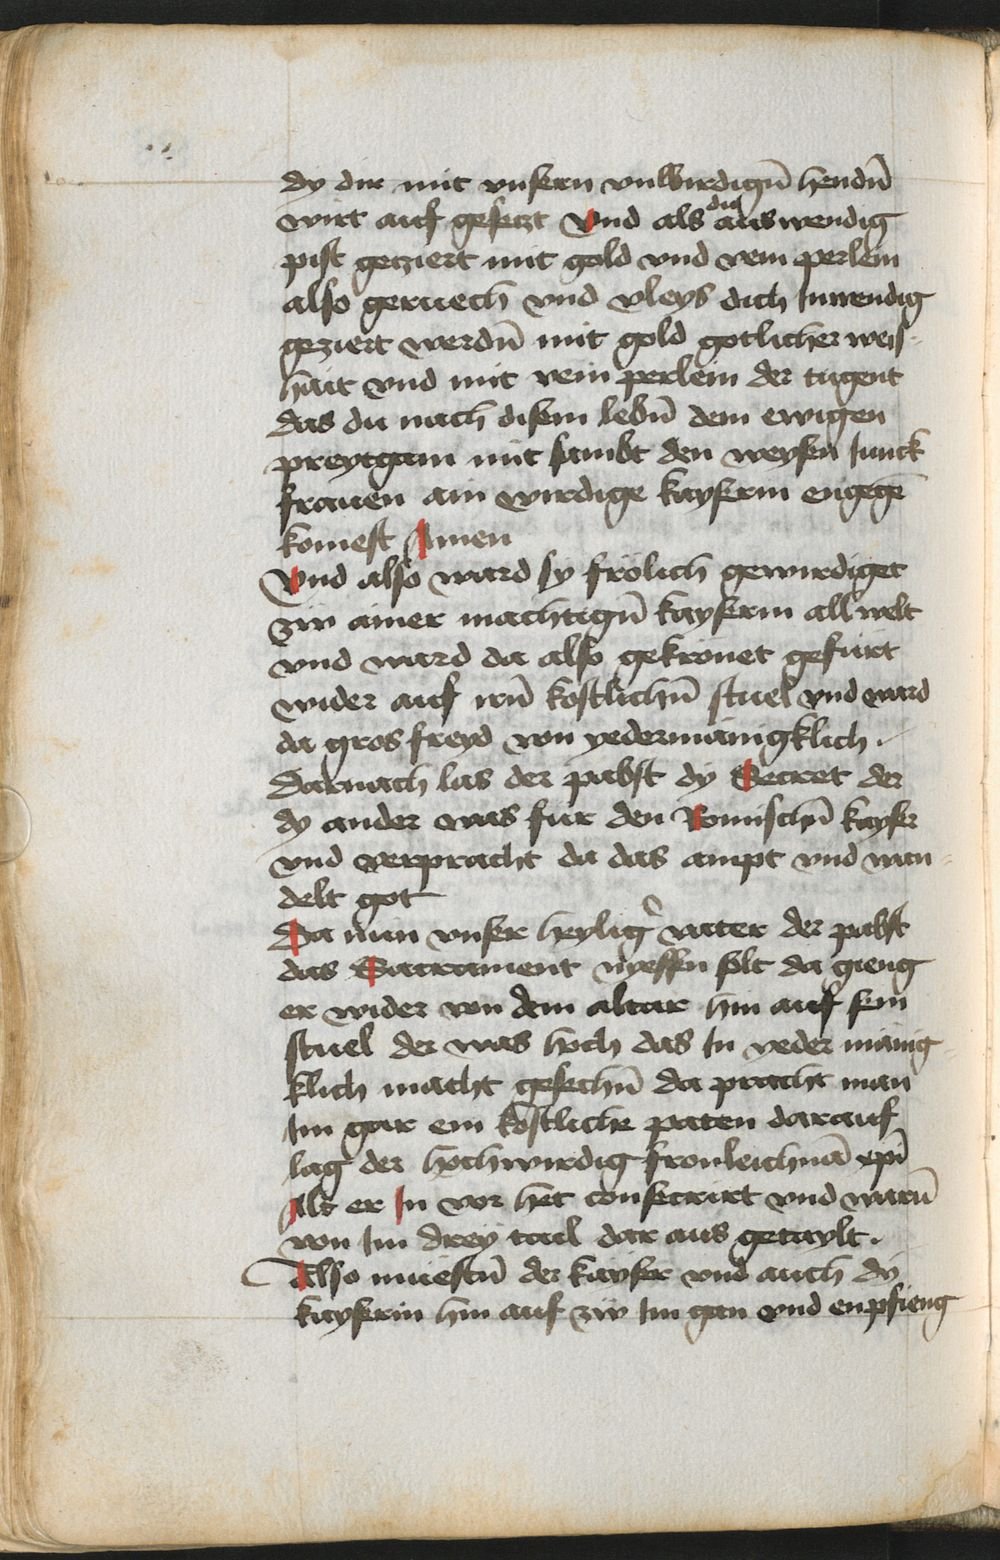 dy dir mit vnsern vnwirdigñ hendñ
wirt auf gesetzt Vnd als du auswendig
pist geziert mit gold vnd rein perlein
also geruech vnd vleys dich Inwendig
geziert werdñ mit gold gotlicher weis-
hait vnd mit rein perlein der tugent
das du nach disem lebñ dem ewigen
preytgam mit sambt den weysen Junck
frauen ain wirdige kayserin engegē
komest Amen
Vnd also ward sy frölich gewirdiget
zw ainer machtigñ kayserin all welt
vnd ward da also gekronet gefürt
wider auf irñ kostlichñ stuel vnd ward
da gros freyd von yedermänigklich .
Darnach las der pabst dy Secret der
dy ander was für den Romischñ kayser
vnd verpracht da das ampt vnd wan-
delt got
Da nün vnser heylig̊ vater der pabst
das Sacrament nyessen solt da gieng
er wider von dem altar hin auf sein
stuel der was hoch das In yeder mänig-
klich macht gesechñ da pracht man
Im gar ein kostliche paten darauf
lag der hochwirdig fronleichnā xp̄i
Als er In vor het consecrirt vnd warñ
von Im drey tail dar aus getaylt .
Also muestñ der kayser vnd auch dy
kayserin hin auf zw Im gan vnd enpfieng